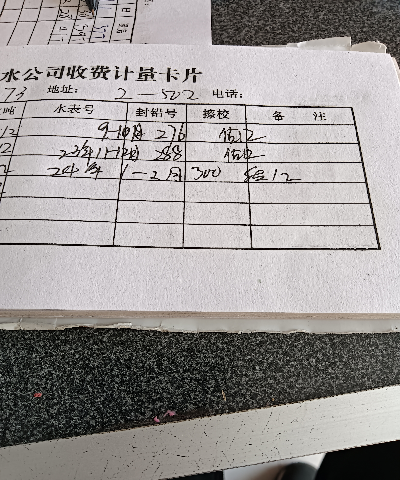 水公司收费计量卡片
73 地址: 2-502 电话:
水表号 封铅号 擦校 备 注
12 9-10月 276 估12
2 23年11-12月 288 估12
2 24年 1-2月 300 估12